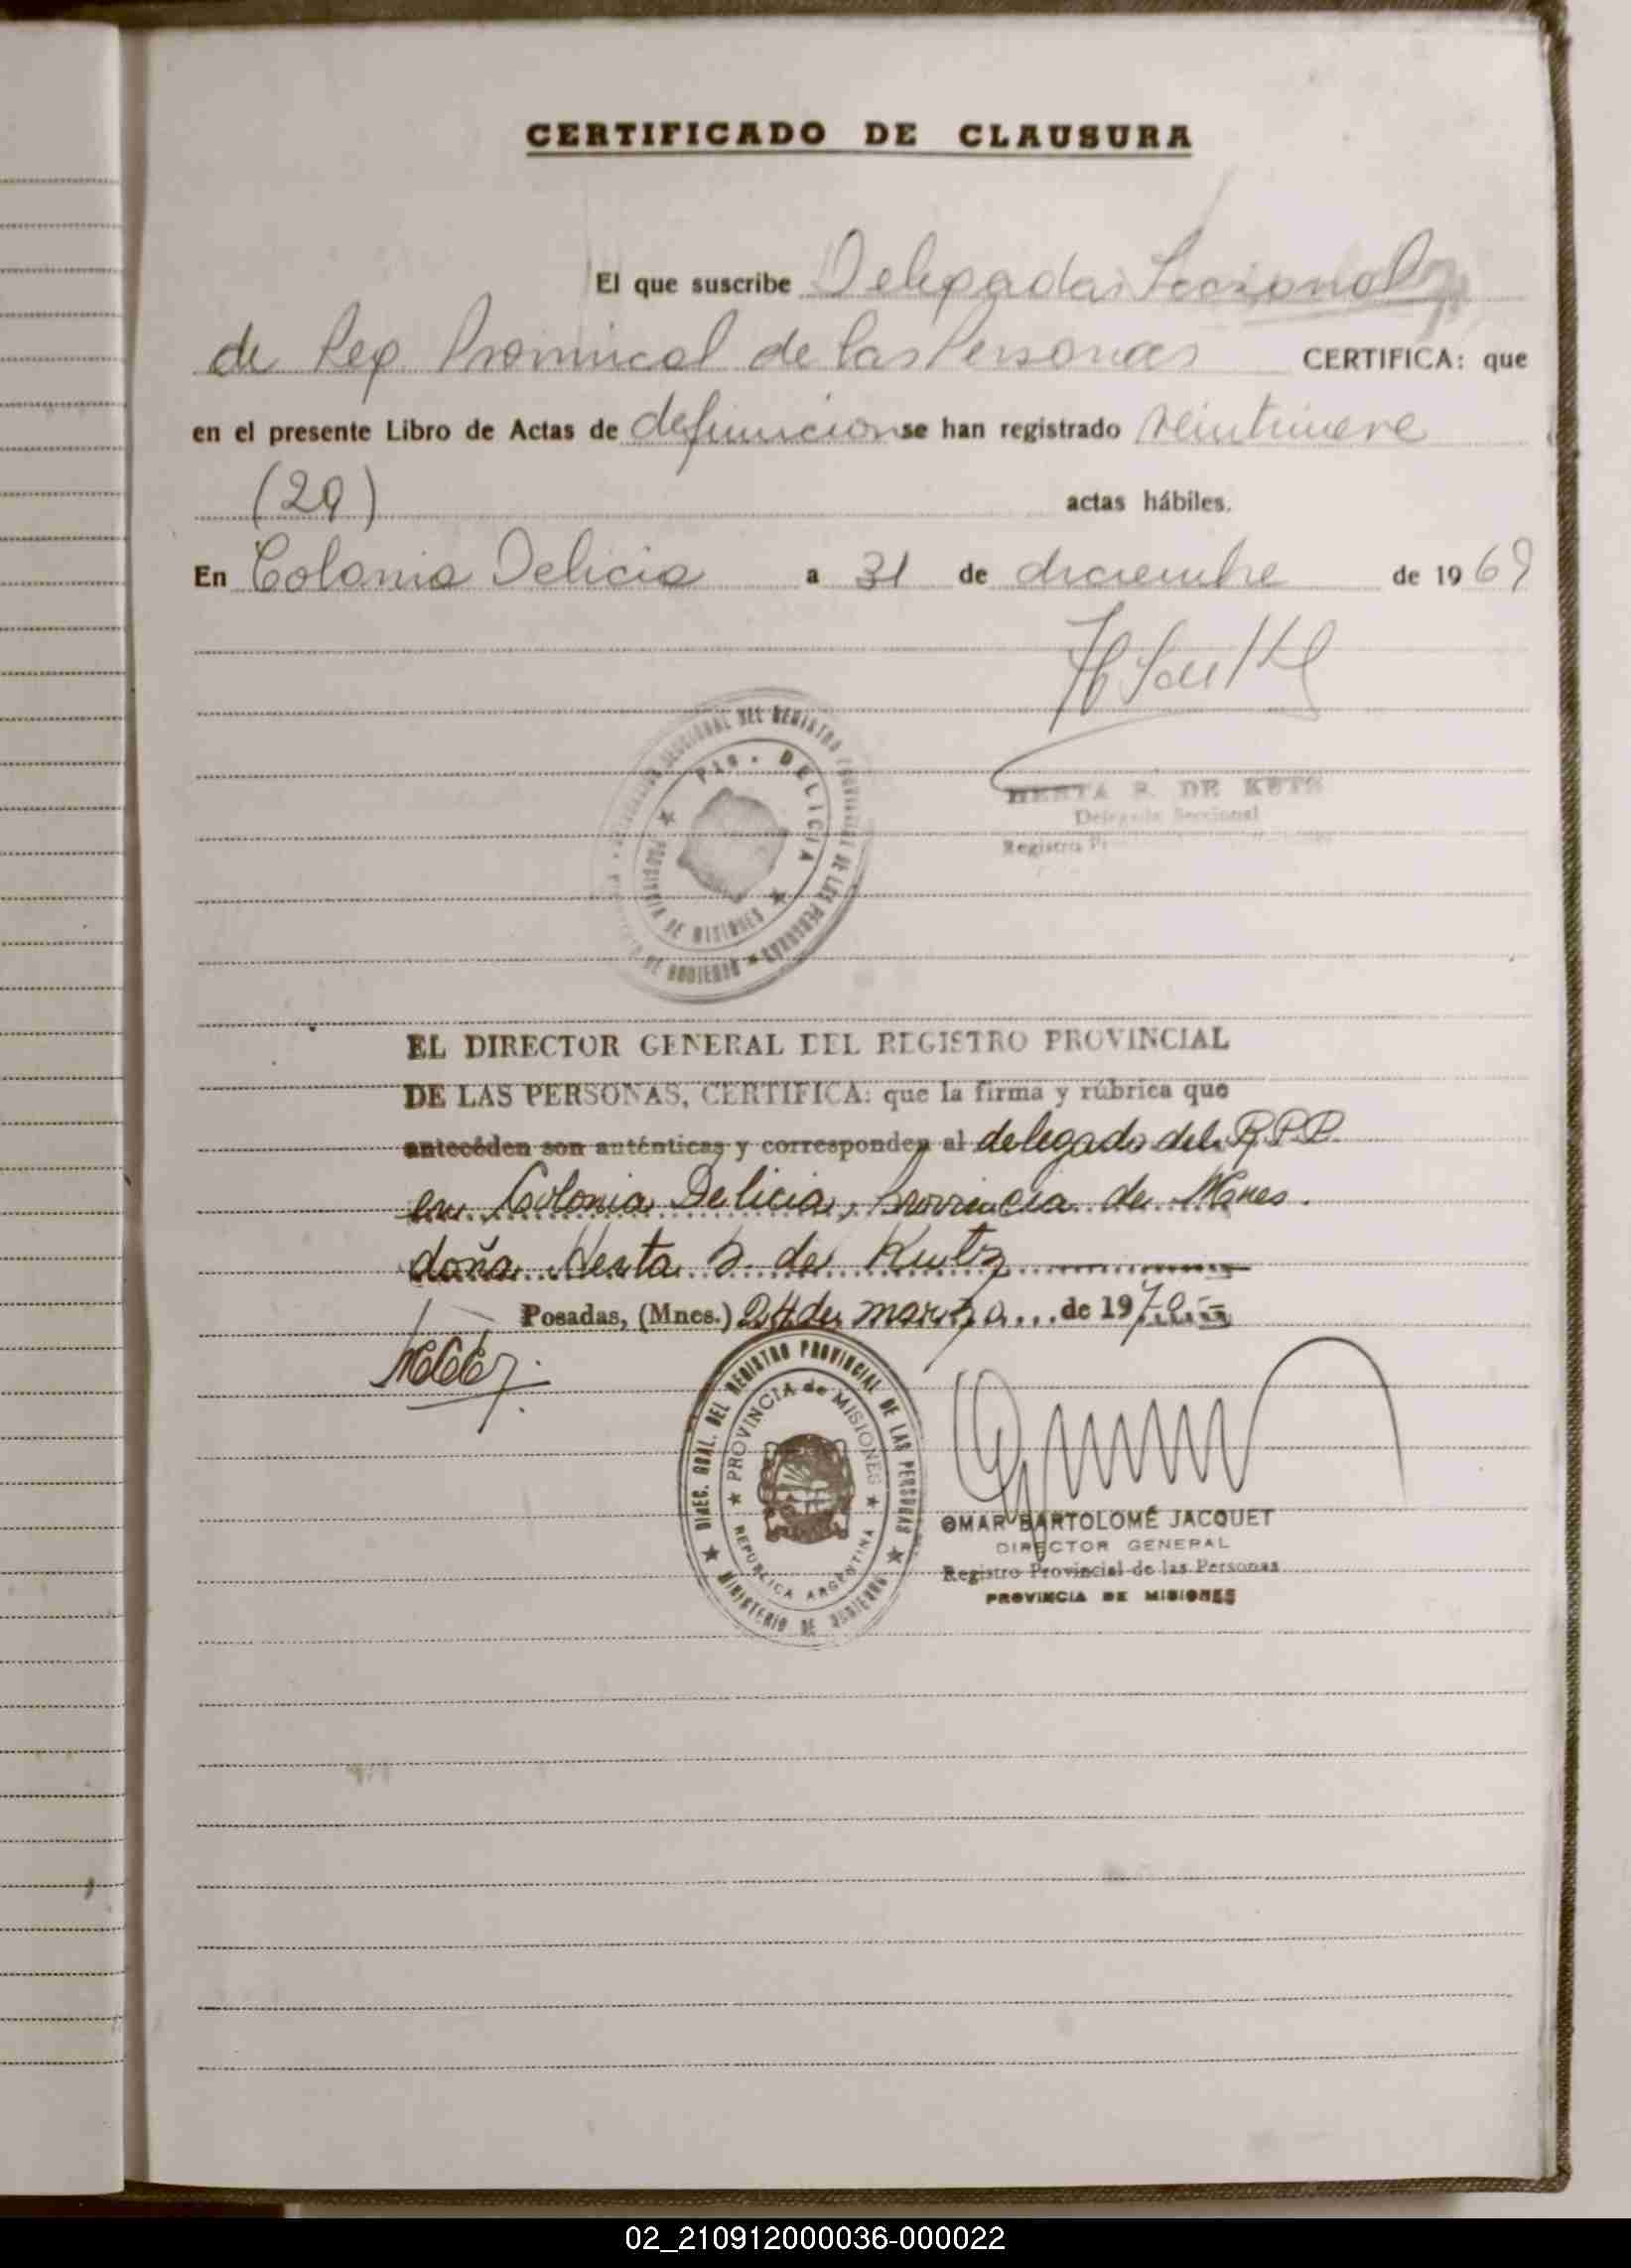 CERTIFICADO DE CLAUSURA
El que suscribe Delegada Seccional
de Reg. Provincial de las Personas CERTIFICA: que
en el presente Libro de Actas de defuncion se han registrado veintinueve
(29) actas hábiles.
En Colonia Delicia a 31 de diciembre de 1969
SECCIONAL DEL REGISTRO PROVINCIAL DE LAS PERSONAS
DELICIA
PROVINCIA DE MISIONES
DE GOBIERNO
HERTA S. DE KUTZ
Delegada Seccional
Registro
EL DIRECTOR GENERAL DEL REGISTRO PROVINCIAL
DE LAS PERSONAS, CERTIFICA: que la firma y rúbrica que
antecéden son auténticas y corresponden al delegado del R.P.P.
en Colonia Delicia, Provincia de Mnes.
doña Herta S. de Kutz
Posadas, (Mnes.) 24 de marzo de 1970
DIREC. GRAL. DEL REGISTRO PROVINCIAL DE LAS PERSONAS
PROVINCIA de MISIONES
REPUBLICA ARGENTINA
MINISTERIO DE GOBIERNO
OMAR BARTOLOMÉ JACQUET
DIRECTOR GENERAL
Registro Provincial de las Personas
PROVINCIA DE MISIONES
02_210912000036-000022